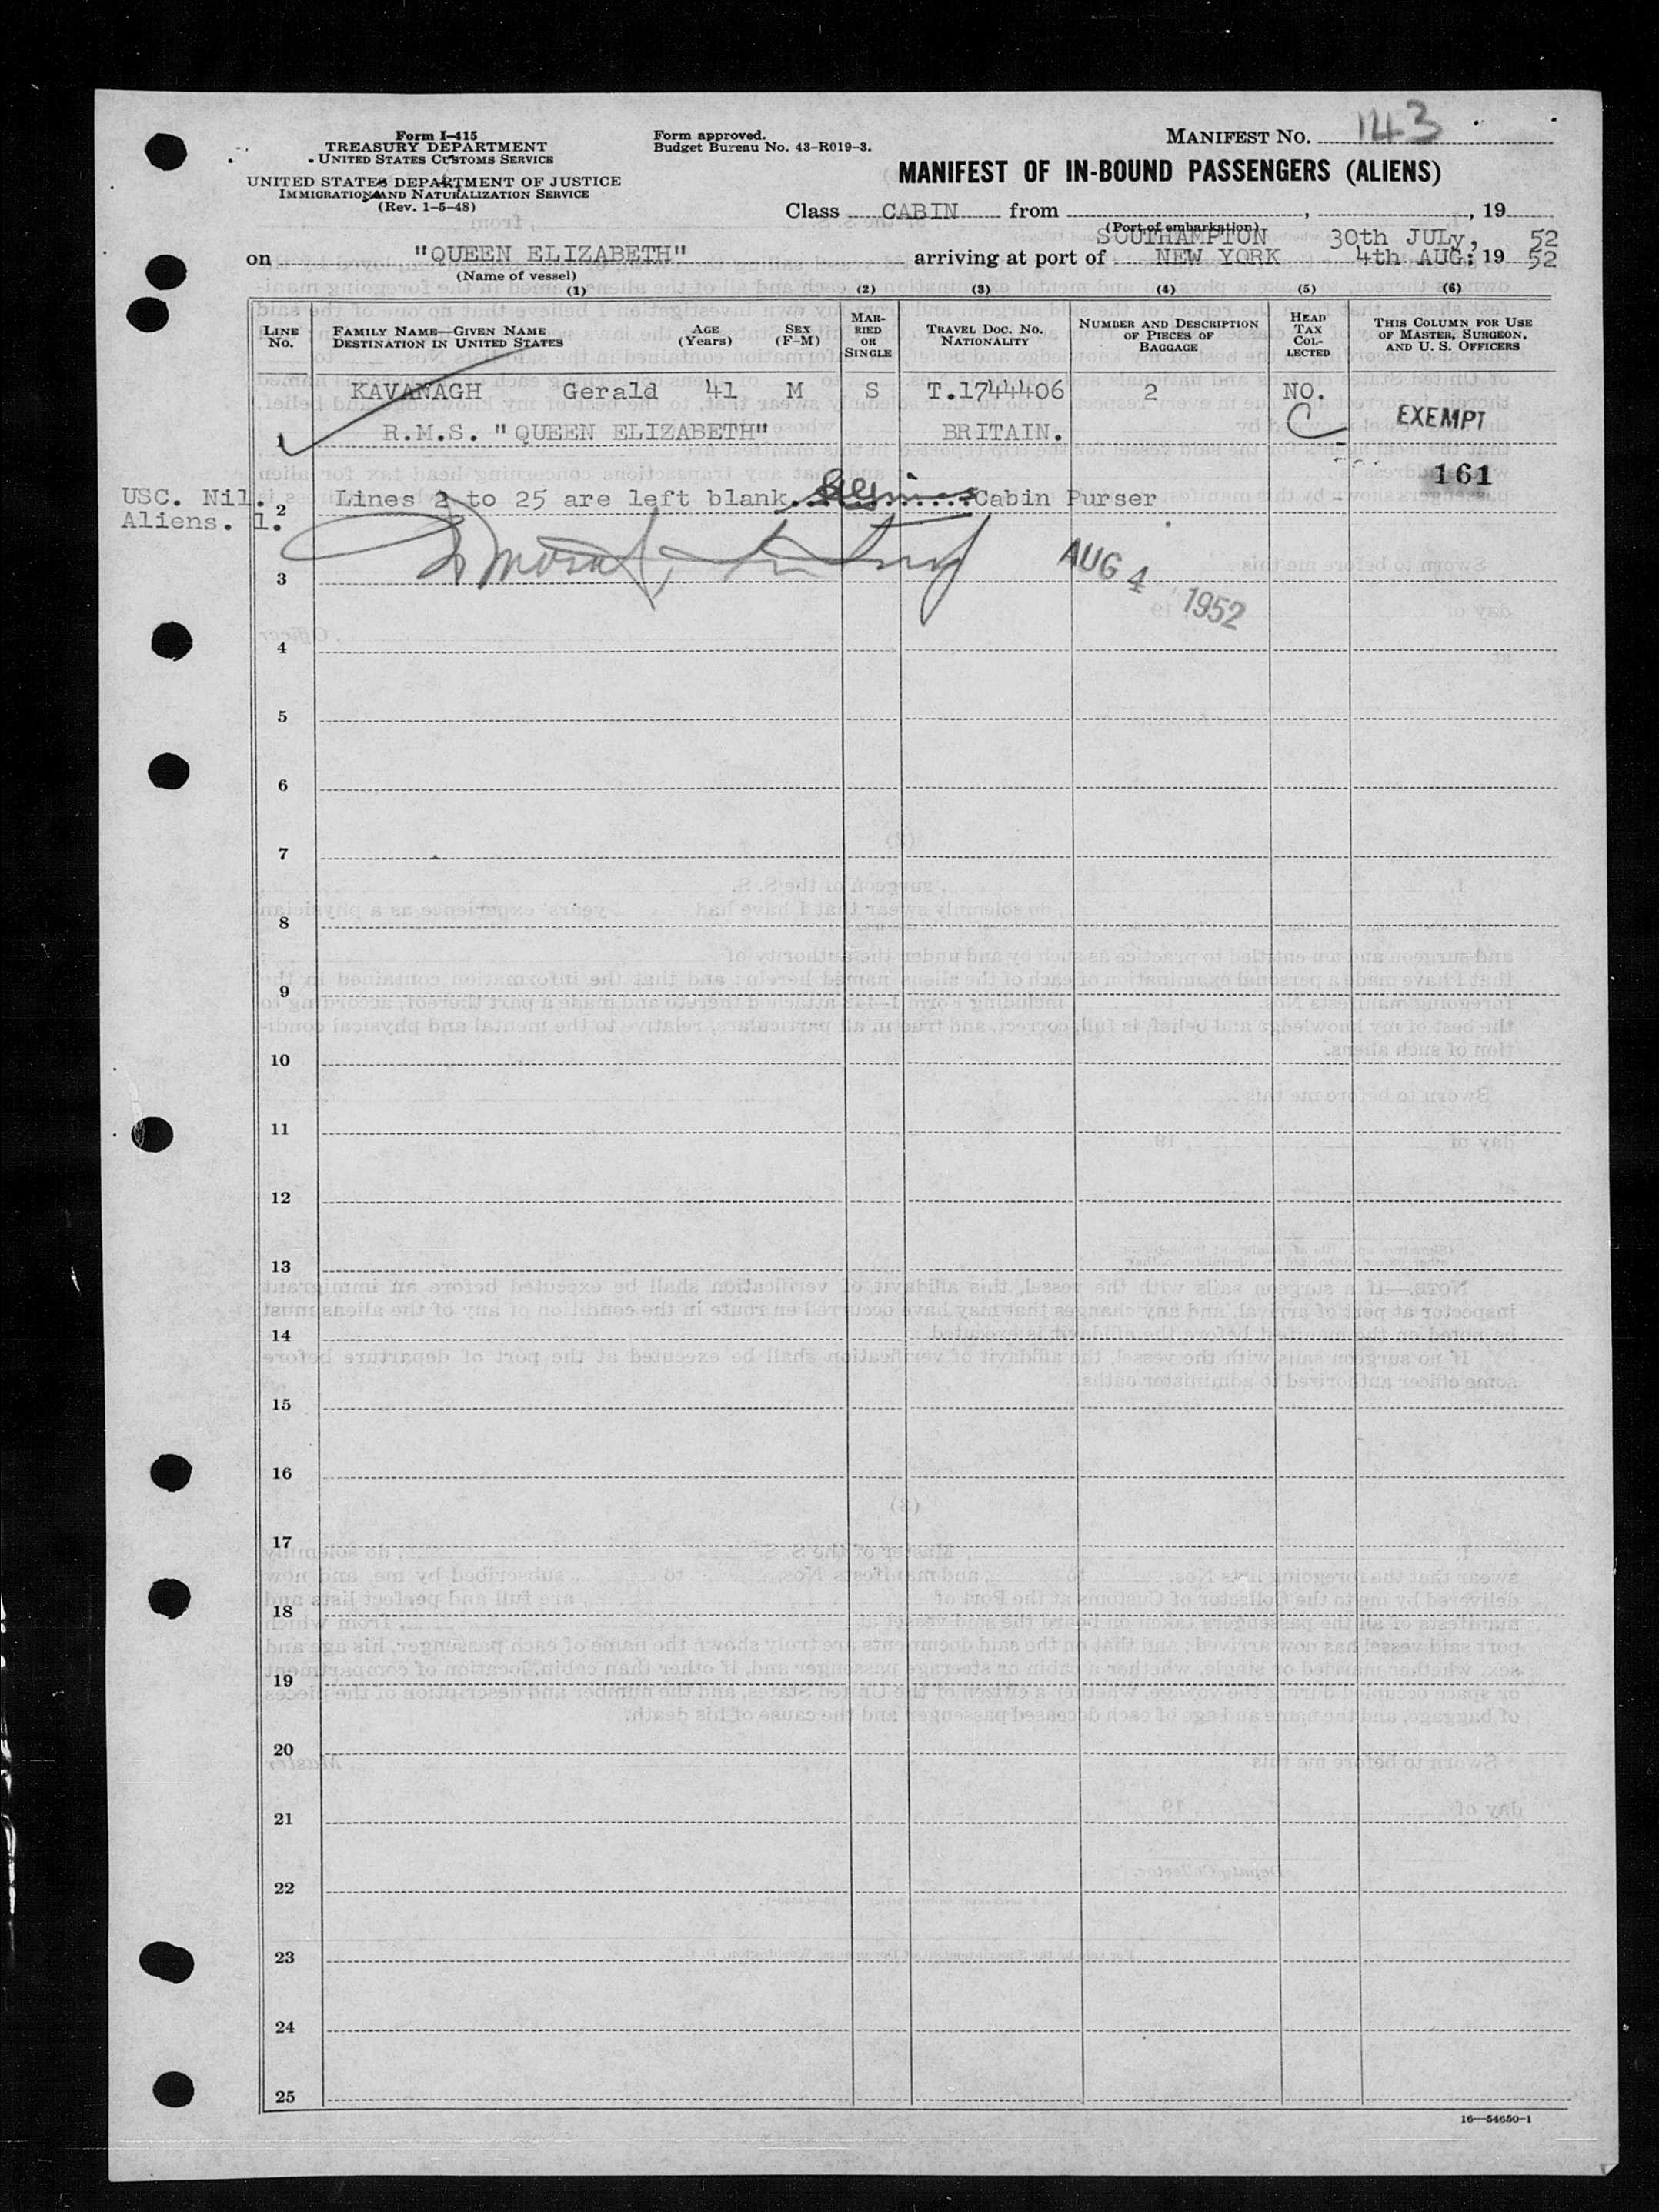 Form I-415
TREASURY DEPARTMENT
UNITED STATES CUSTOMS SERVICE
UNITED STATES DEPARTMENT OF JUSTICE
IMMIGRATION AND NATURALIZATION SERVICE
(Rev. 1-5-48)
Form approved.
Budget Bureau No. 43-R019-3.
MANIFEST NO. 143
MANIFEST OF IN-BOUND PASSENGERS (ALIENS)
Class CABIN from , , 19
(Port of embarkation)
SOUTHAMPTON 30th JULy, 52
on "QUEEN ELIZABETH" arriving at port of NEW YORK 4th AUG: 19 52
(Name of vessel)
(1) (2) (3) (4) (5) (6)
LINE No. FAMILY NAME—GIVEN NAME DESTINATION IN UNITED STATES AGE (Years) SEX (F-M) MARRIED OR SINGLE TRAVEL DOC. NO. NATIONALITY NUMBER AND DESCRIPTION OF PIECES OF BAGGAGE HEAD TAX COLLECTED THIS COLUMN FOR USE OF MASTER, SURGEON, AND U. S. OFFICERS
KAVANAGH Gerald 41 M S T.1744406 2 NO.
1 R.M.S. "QUEEN ELIZABETH" BRITAIN. C EXEMPT
161
USC. Nil. Lines 2 to 25 are left blank. Cabin Purser
2
Aliens. 1.
AUG 4 1952
3
4
5
6
7
8
9
10
11
12
13
14
15
16
17
18
19
20
21
22
23
24
25
16—54650-1